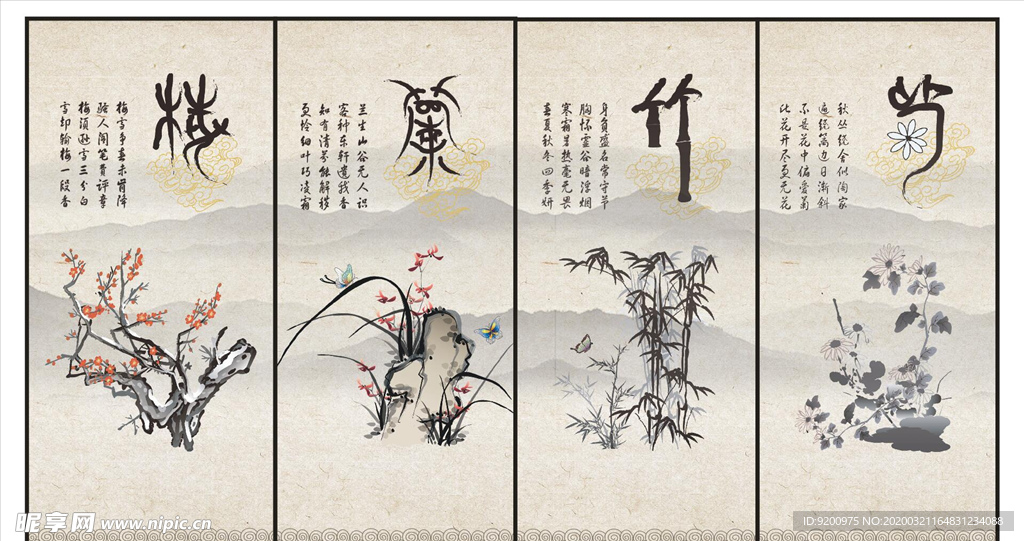 梅
梅雪争春未肯降
骚人阁笔费评章
梅须逊雪三分白
雪却输梅一段香
蘭
兰生山谷无人识
客种东轩遗我香
知有清芬能解秽
更怜细叶巧凌霜
竹
身負盛名常守节
胸怀虚谷暗浮烟
寒霜暑热毫无畏
春夏秋冬四季妍
菊
秋丛绕舍似陶家
遍绕篱边日渐斜
不是花中偏爱菊
此花开尽更无花
昵享网 www.nipic.cn
ID:9200975 NO:20200321164831234088